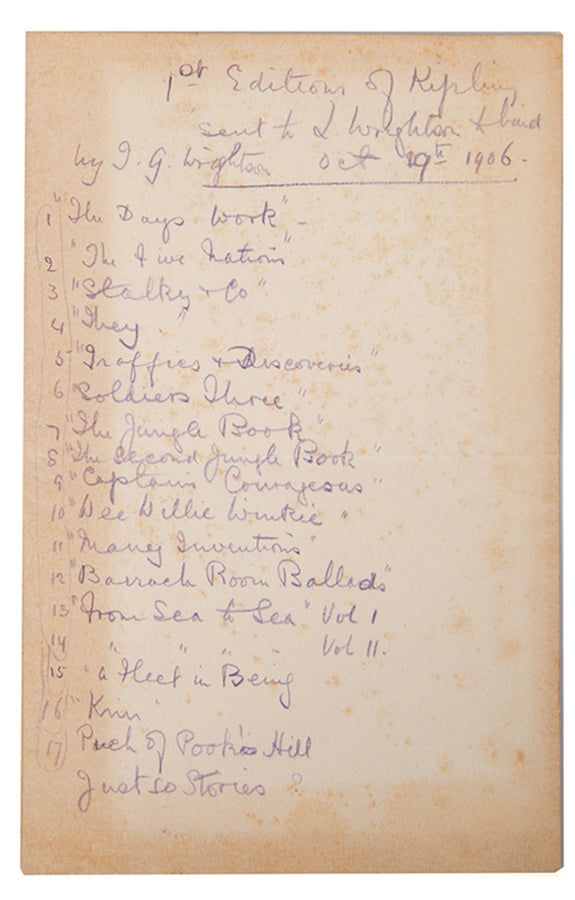 1st Editions of Kipling
sent to L. Wrightson to bind
by I. G. Wrightson Oct 19th 1906.
1 "The Days Work" -
2 "The Five Nations"
3 "Stalky & Co"
4 "They."
5 "Traffics & Discoveries"
6 "Soldiers Three"
7 "The Jungle Book"
8 "The Second Jungle Book"
9 "Captains Courageous"
10 "Wee Willie Winkie"
11 "Many Inventions"
12 "Barrack Room Ballads"
13 "From Sea to Sea" Vol I
14 " " " " Vol II.
15 "a Fleet in Being
16 "Kim"
17 Puck of Pook's Hill
Just so Stories ?